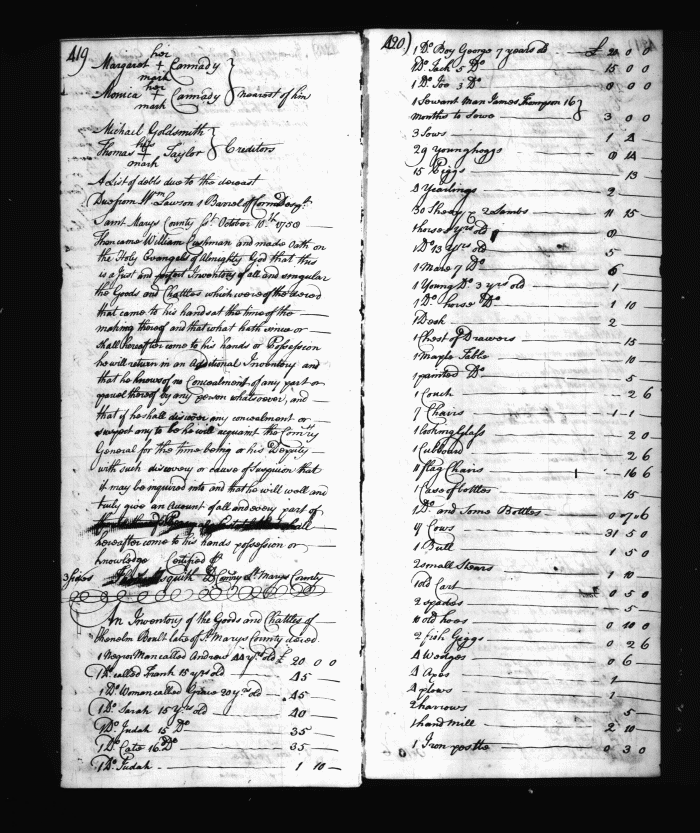 419
her
Margaret + Cannady
mark
her
Monica + Cannady } nearest of kin
mark
Michael Goldsmith
his
Thomas Taylor } Creditors
mark
A List of debts due to the deceast
Due from Wm Lawson 1 Barrel of Corn
Saint Marys County Sct October 10th 1758
Then came William Cushman and made Oath on
the Holy Evangels of Almighty God that this
is a Just and perfect Inventory of all and singular
the Goods and Chattles which were of the deced
that came to his hands at the time of the
making thereof and that what hath since or
shall hereafter come to his hands or Possession
he will return in an Additional Inventory and
that he knows of no Concealment of any part or
parcel thereof by any person whatsoever, and
that if he shall discover any concealment or
suspect any to be he will acquaint the Comry
General for the time being or his Deputy
with such discovery or cause of suspicion that
it may be inquired into and that he will well and
truly give an Account of all and every part of
hereafter come to his hands possession or
knowledge Certified
3 sides Asquith D Comry St Marys County
An Inventory of the Goods and Chattles of
Boult late of St Marys County deced
1 Negro Man called Andrew 44 yrs old £ 20 0 0
1 Do. called Frank 15 yrs old 45
1 Do. Woman called Grace 20 yrs old 45
1 Do. Sarah 15 yrs old 40
1 Do. Judah 15 Do 35
1 Do. Cate 16 Do 35
1 Do. Judah 1 10
420
1 Do. Boy George 7 years old £ 20 0 0
1 Do. Jack 5 Do 15 0 0
1 Do. Joe 3 Do 8 0 0
1 Servant Man James Thompson 16 }
months to Serve 3 0 0
3 Sows 1 4
29 young hoggs 8 14
15 Piggs 13
8 Yearlings 2
30 Sheep & 2 Lambs 11 15
1 horse yrs old 8
1 Do 13 yrs old 5
1 Mare 7 Do 6
1 Young Do 3 yrs old 1
1 Do. horse Do 1 10
1 Desk 2
1 Chest of Drawers 15
1 Maple Table 10
1 painted Do 5
1 Couch 2 6
7 Chairs 1 1
1 looking Glass 2 0
1 Cubboard 2 6
11 flag Chairs 16 6
1 Case of bottles 15
1 Do and Some Bottles 0 7 6
9 Cows 31 5 0
1 Bull 1 5 0
2 small Stears 1 10
1 old Cart 0 5 0
2 spades 5
10 old hoes 0 10 0
2 fish Giggs 0 2 6
4 Wedges 0 6
4 Axes 1
4 plows 1
2 harrows 5
1 hand mill 2 10
1 Iron pestle 0 3 0